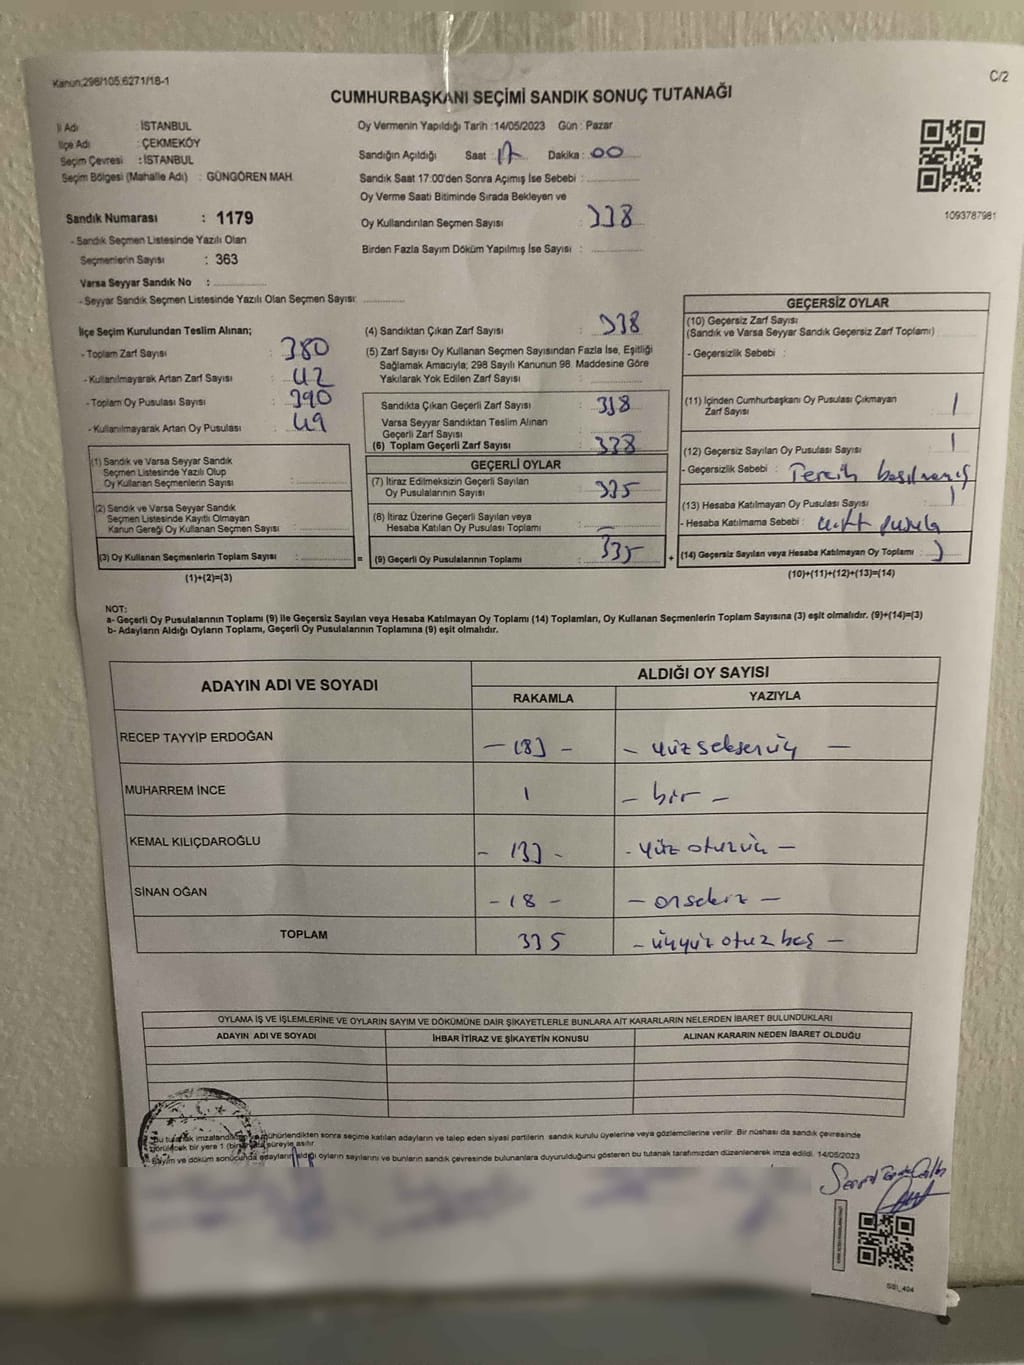 Kanun;298/105,6271/18-1
C/2
CUMHURBAŞKANI SEÇİMİ SANDIK SONUÇ TUTANAĞI
İl Adı : İSTANBUL
İlçe Adı : ÇEKMEKÖY
Seçim Çevresi : İSTANBUL
Seçim Bölgesi (Mahalle Adı) : GÜNGÖREN MAH.
Sandık Numarası : 1179
- Sandık Seçmen Listesinde Yazılı Olan
Seçmenlerin Sayısı : 363
Varsa Seyyar Sandık No :
- Seyyar Sandık Seçmen Listesinde Yazılı Olan Seçmen Sayısı:
Oy Vermenin Yapıldığı Tarih :14/05/2023 Gün : Pazar
Sandığın Açıldığı Saat : 17 Dakika : 00
Sandık Saat 17:00'den Sonra Açımış İse Sebebi :
Oy Verme Saati Bitiminde Sırada Bekleyen ve
Oy Kullandırılan Seçmen Sayısı : 338
Birden Fazla Sayım Döküm Yapılmış İse Sayısı :
1093787981
İlçe Seçim Kurulundan Teslim Alınan;
- Toplam Zarf Sayısı : 380
- Kullanılmayarak Artan Zarf Sayısı : 42
- Toplam Oy Pusulası Sayısı : 390
- Kullanılmayarak Artan Oy Pusulası : 49
(1) Sandık ve Varsa Seyyar Sandık
Seçmen Listesinde Yazılı Olup
Oy Kullanan Seçmenlerin Sayısı :
(2) Sandık ve Varsa Seyyar Sandık
Seçmen Listesinde Kayıtlı Olmayan
Kanun Gereği Oy Kullanan Seçmen Sayısı :
(3) Oy Kullanan Seçmenlerin Toplam Sayısı :
(1)+(2)=(3)
(4) Sandıktan Çıkan Zarf Sayısı : 338
(5) Zarf Sayısı Oy Kullanan Seçmen Sayısından Fazla İse, Eşitliği
Sağlamak Amacıyla; 298 Sayılı Kanunun 98. Maddesine Göre
Yakılarak Yok Edilen Zarf Sayısı :
Sandıkta Çıkan Geçerli Zarf Sayısı : 338
Varsa Seyyar Sandıktan Teslim Alınan
Geçerli Zarf Sayısı :
(6) Toplam Geçerli Zarf Sayısı : 338
GEÇERLİ OYLAR
(7) İtiraz Edilmeksizin Geçerli Sayılan
Oy Pusulalarının Sayısı : 335
(8) İtiraz Üzerine Geçerli Sayılan veya
Hesaba Katılan Oy Pusulası Toplamı : —
= (9) Geçerli Oy Pusulalarının Toplamı : 335
GEÇERSİZ OYLAR
(10) Geçersiz Zarf Sayısı
(Sandık ve Varsa Seyyar Sandık Geçersiz Zarf Toplamı)
- Geçersizlik Sebebi :
(11) İçinden Cumhurbaşkanı Oy Pusulası Çıkmayan
Zarf Sayısı : 1
(12) Geçersiz Sayılan Oy Pusulası Sayısı : 1
- Geçersizlik Sebebi : Tercih basılmamış
(13) Hesaba Katılmayan Oy Pusulası Sayısı : 1
- Hesaba Katılmama Sebebi : çift pusula
+ (14) Geçersiz Sayılan veya Hesaba Katılmayan Oy Toplamı : 3
(10)+(11)+(12)+(13)=(14)
NOT:
a- Geçerli Oy Pusulalarının Toplamı (9) ile Geçersiz Sayılan veya Hesaba Katılmayan Oy Toplamı (14) Toplamları, Oy Kullanan Seçmenlerin Toplam Sayısına (3) eşit olmalıdır. (9)+(14)=(3)
b- Adayların Aldığı Oyların Toplamı, Geçerli Oy Pusulalarının Toplamına (9) eşit olmalıdır.
ADAYIN ADI VE SOYADI ALDIĞI OY SAYISI
RAKAMLA YAZIYLA
RECEP TAYYİP ERDOĞAN – 183 – – yüzseksenüç –
MUHARREM İNCE 1 – bir –
KEMAL KILIÇDAROĞLU – 133 – – yüz otuzüç –
SİNAN OĞAN – 18 – – onsekiz –
TOPLAM 335 – üçyüz otuz beş –
OYLAMA İŞ VE İŞLEMLERİNE VE OYLARIN SAYIM VE DÖKÜMÜNE DAİR ŞİKAYETLERLE BUNLARA AİT KARARLARIN NELERDEN İBARET BULUNDUKLARI
ADAYIN ADI VE SOYADI İHBAR İTİRAZ VE ŞİKAYETİN KONUSU ALINAN KARARIN NEDEN İBARET OLDUĞU
Bu tutanak mühürlendikten sonra seçime katılan adayların ve talep eden siyasi partilerin sandık kurulu üyelerine veya gözlemcilerine verilir. Bir nüshası da sandık çevresinde
görülecek bir yere 1 süreyle asılır.
Sayım ve döküm sonucunda adayların aldığı oyların sayılarını ve bunların sandık çevresinde bulunanlara duyurulduğunu gösteren bu tutanak tarafımızdan düzenlenerek imza edildi. 14/05/2023